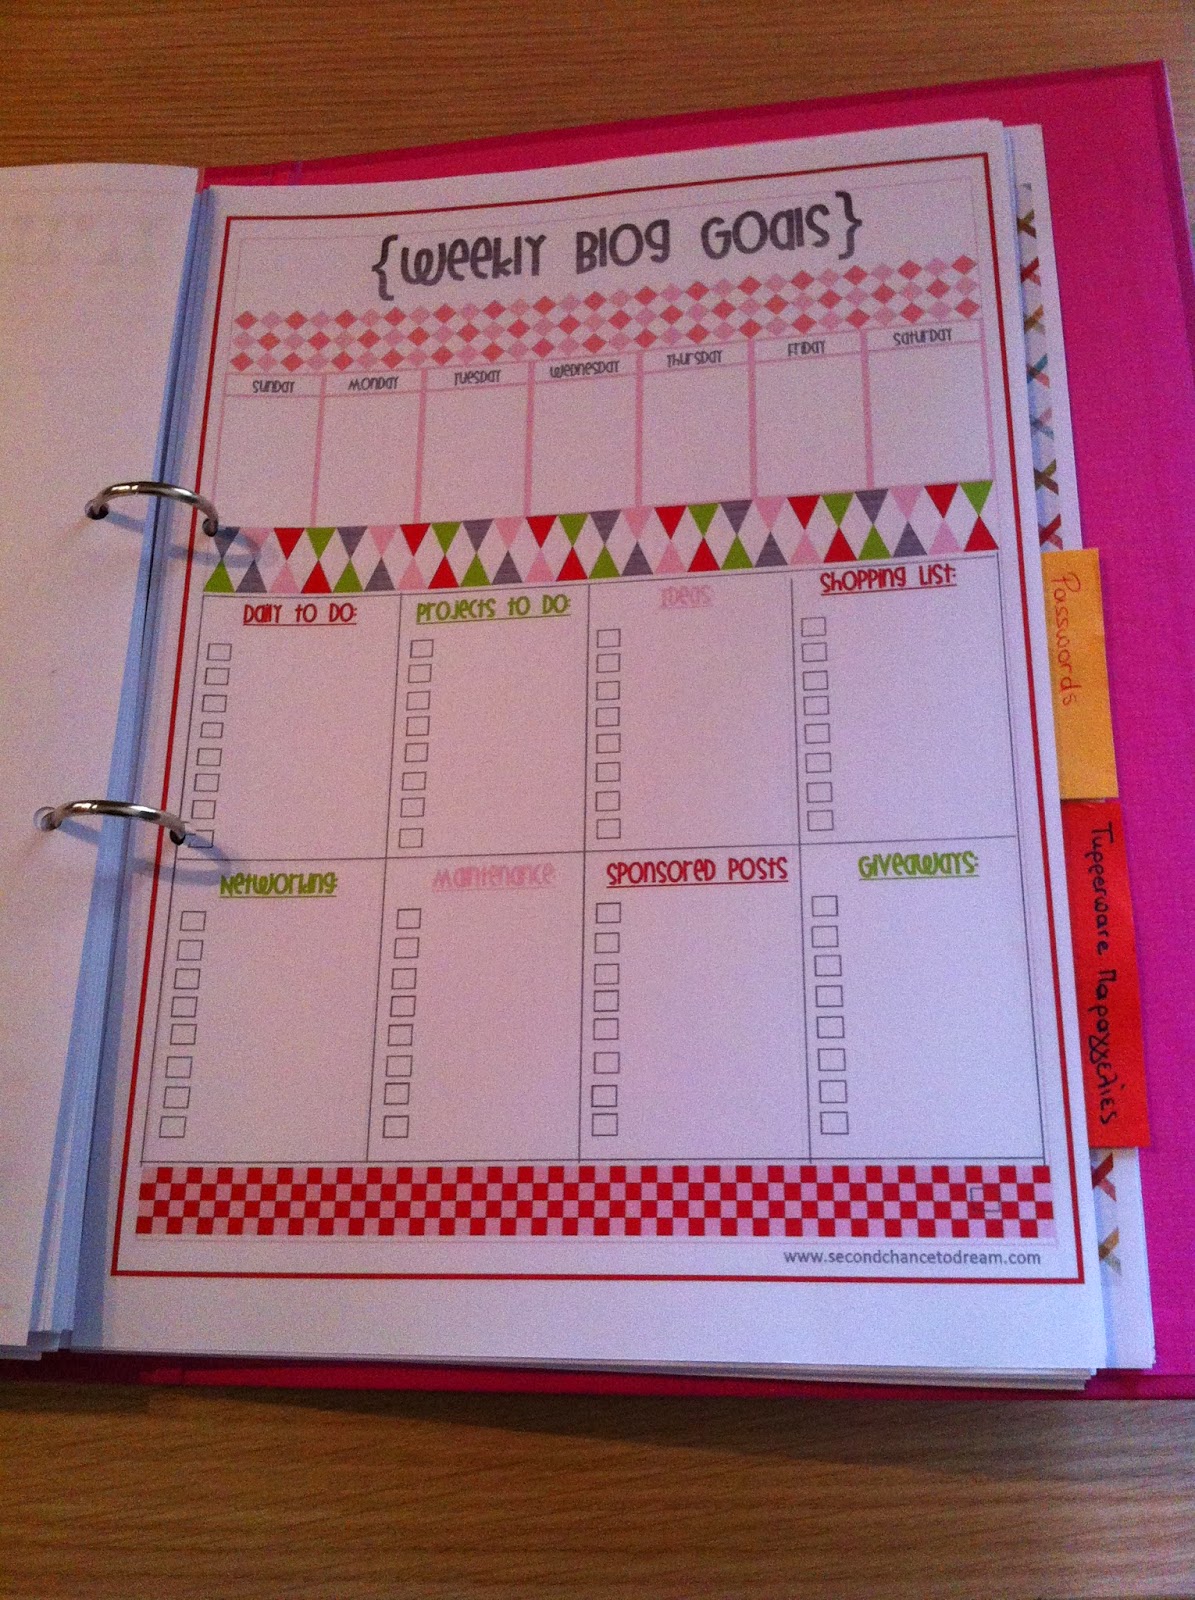 {Weekly Blog Goals}
Sunday Monday Tuesday Wednesday Thursday Friday Saturday
Daily to do: Projects to do: Ideas Shopping List:
Networking: Maintenance Sponsored Posts Giveaways:
www.secondchancetodream.com
Passwords
Tupperware Παραγγελίες